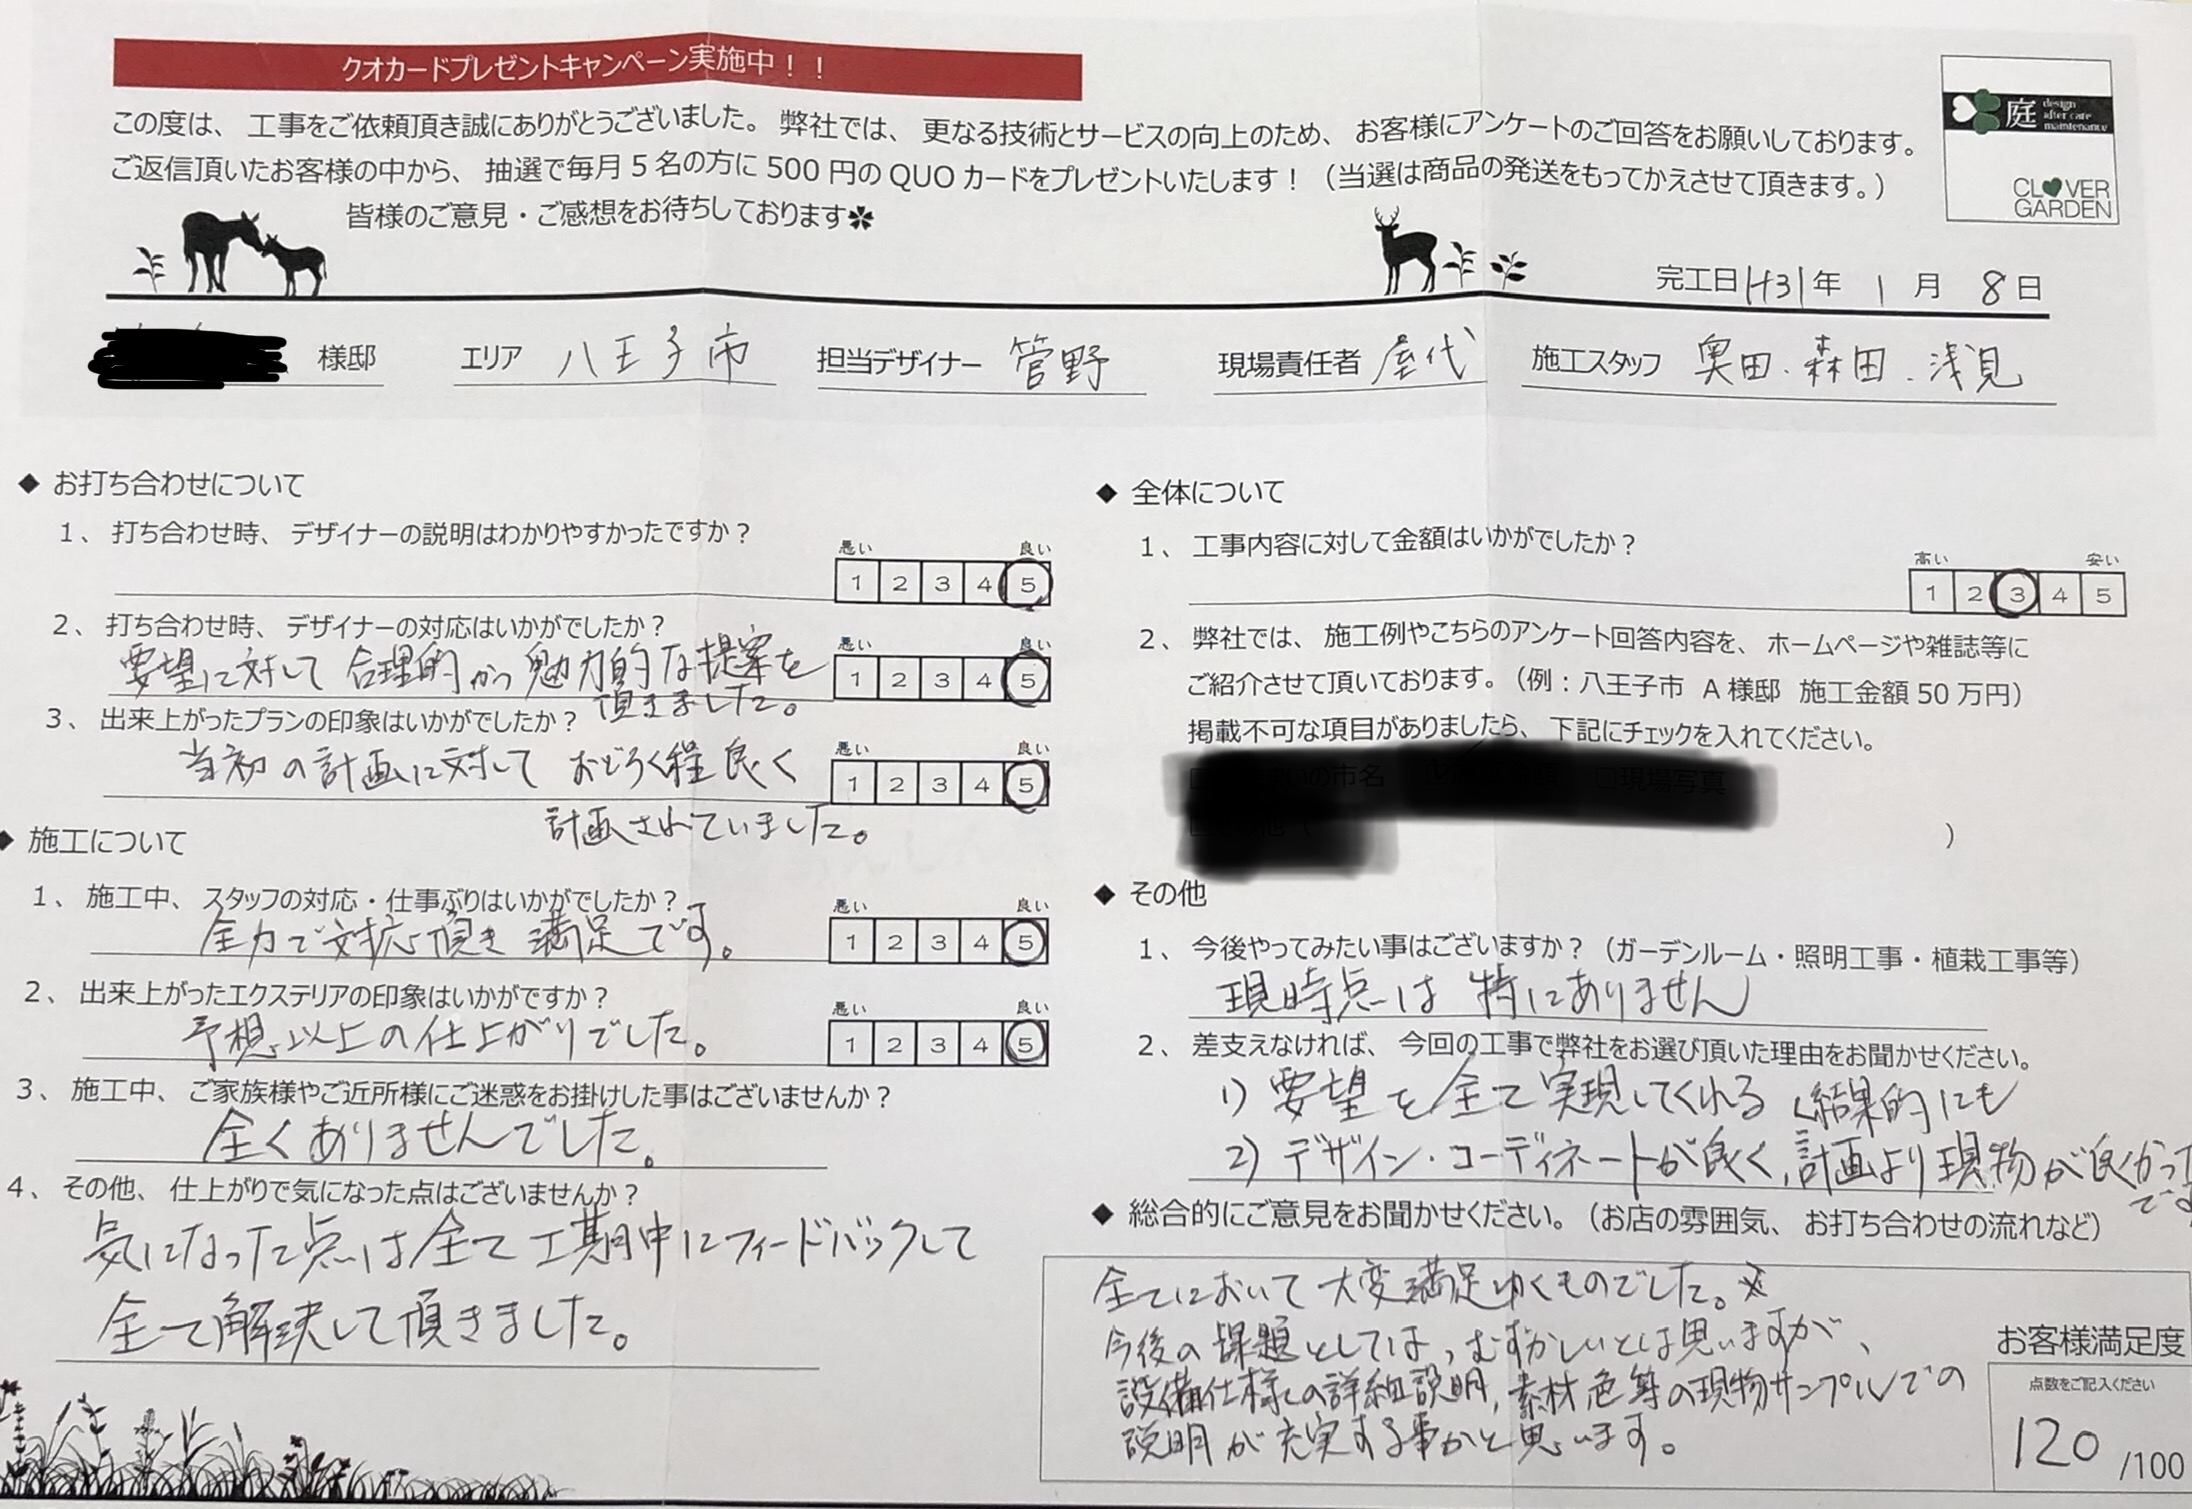 クオカードプレゼントキャンペーン実施中！！
この度は、工事をご依頼頂き誠にありがとうございました。弊社では、更なる技術とサービスの向上のため、お客様にアンケートのご回答をお願いしております。
ご返信頂いたお客様の中から、抽選で毎月５名の方に500円のQUOカードをプレゼントいたします！（当選は商品の発送をもってかえさせて頂きます。）
皆様のご意見・ご感想をお待ちしております✽
庭 design after care maintenance
CLOVER GARDEN
完工日 H31年 1月 8日
様邸 エリア 八王子市 担当デザイナー 菅野 現場責任者 屋代 施工スタッフ 奥田．森田．浅見
◆ お打ち合わせについて
１、打ち合わせ時、デザイナーの説明はわかりやすかったですか？
悪い 良い
1 2 3 4 5
２、打ち合わせ時、デザイナーの対応はいかがでしたか？
悪い 良い
要望に対して合理的かつ魅力的な提案を
頂きました。
1 2 3 4 5
３、出来上がったプランの印象はいかがでしたか？
悪い 良い
当初の計画に対しておどろく程良く
計画されていました。
1 2 3 4 5
◆ 施工について
１、施工中、スタッフの対応・仕事ぶりはいかがでしたか？
悪い 良い
全力で対応頂き満足です。
1 2 3 4 5
２、出来上がったエクステリアの印象はいかがですか？
悪い 良い
予想以上の仕上がりでした。
1 2 3 4 5
３、施工中、ご家族様やご近所様にご迷惑をお掛けした事はございませんか？
全くありませんでした。
４、その他、仕上がりで気になった点はございませんか？
気になった点は全て工期中にフィードバックして
全て解決して頂きました。
◆ 全体について
１、工事内容に対して金額はいかがでしたか？
高い 安い
1 2 3 4 5
２、弊社では、施工例やこちらのアンケート回答内容を、ホームページや雑誌等に
ご紹介させて頂いております。（例：八王子市 A様邸 施工金額50万円）
掲載不可な項目がありましたら、下記にチェックを入れてください。
いの市名 □現場写真
）
◆ その他
１、今後やってみたい事はございますか？（ガーデンルーム・照明工事・植栽工事等）
現時点は特にありません
２、差支えなければ、今回の工事で弊社をお選び頂いた理由をお聞かせください。
1) 要望を全て実現してくれる
2) デザイン・コーディネートが良く、
結果的にも
計画より現物が良かった
です
◆ 総合的にご意見をお聞かせください。（お店の雰囲気、お打ち合わせの流れなど）
全てにおいて大変満足ゆくものでした。
今後の課題としては、むずかしいとは思いますが、
設備仕様の詳細説明，素材色等の現物サンプルでの
説明が充実する事かと思います。
お客様満足度
点数をご記入ください
120 /100